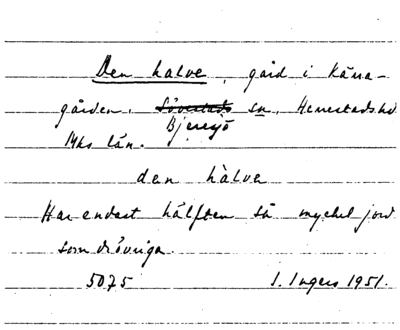 Den halve, gård i Kärra-
gården, Sövestads sn, Herrestads hd
Bjeresjö
Mhs län.
den hàlve
Har endast hälften så mycket jord
som de övriga.
5075 I. Ingers 1951.